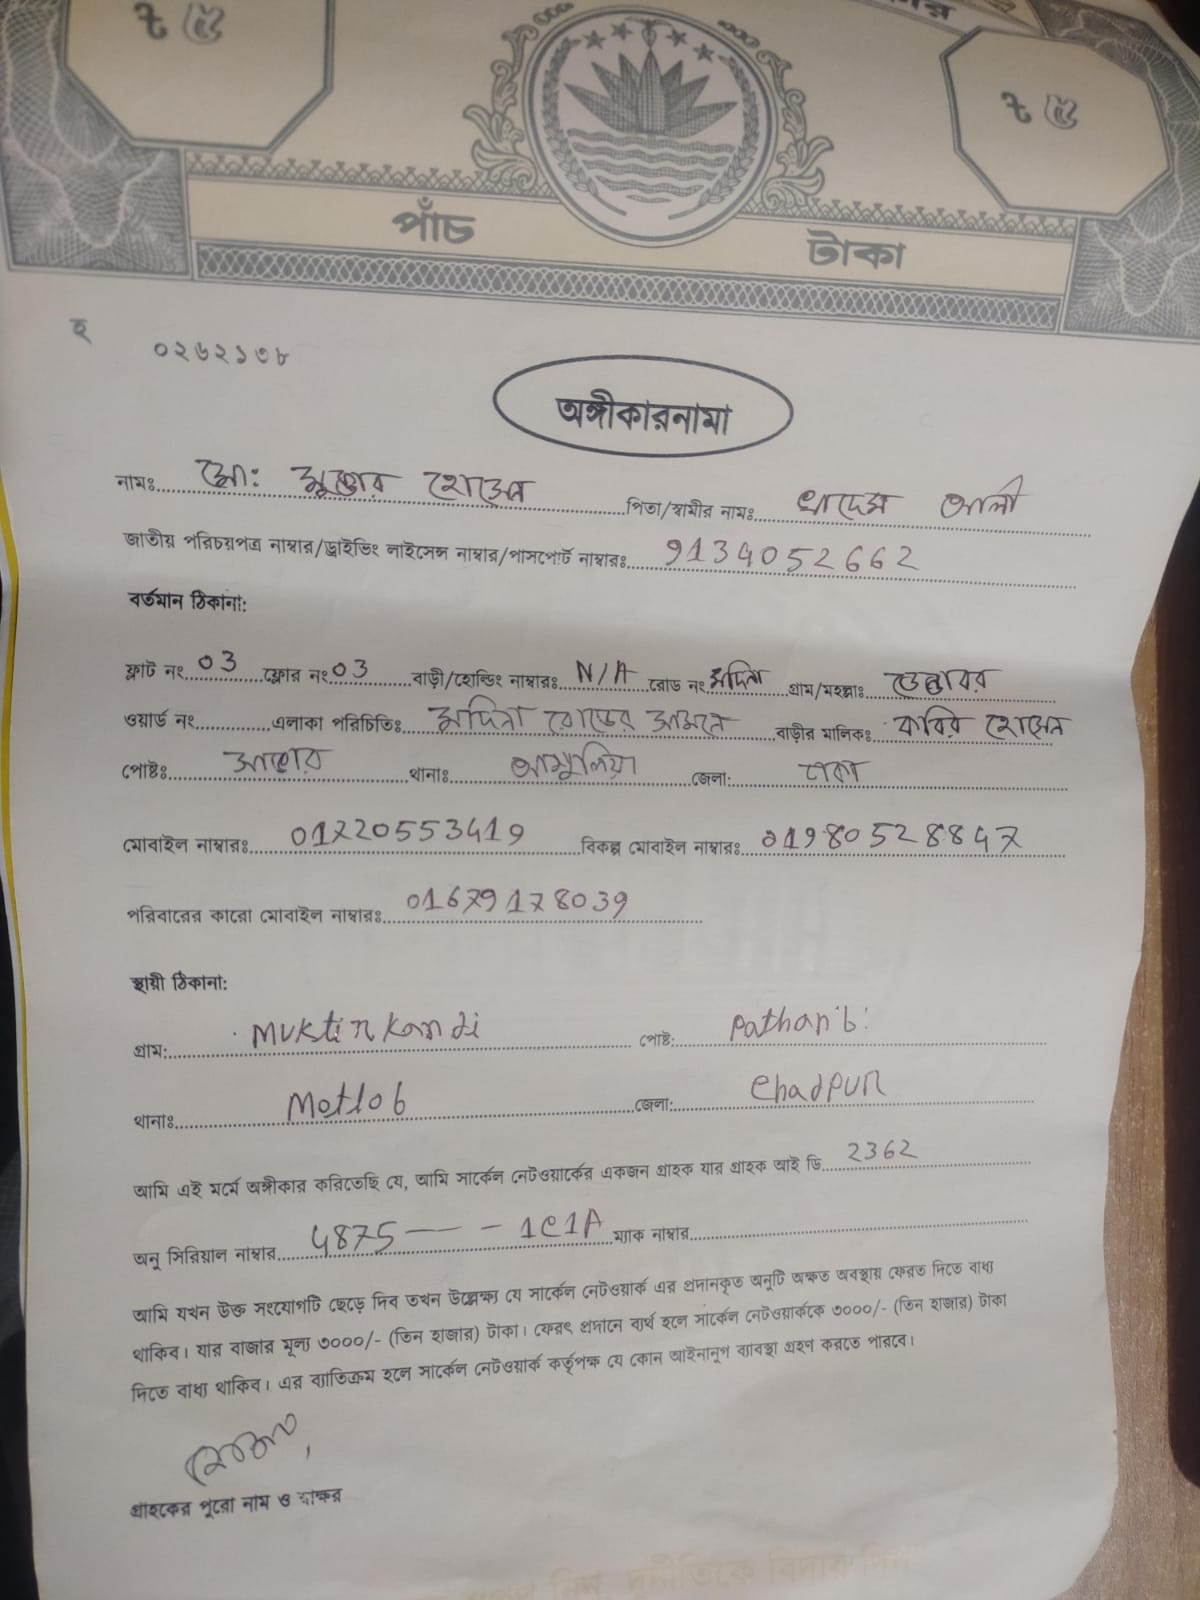 ৳ ৫
৳ ৫
পাঁচ টাকা
হ ০২৬২১৩৮
অঙ্গীকারনামা
নামঃ মো: মুক্তার হোসেন পিতা/স্বামীর নামঃ খাদেম আলী
জাতীয় পরিচয়পত্র নাম্বার/ড্রাইভিং লাইসেন্স নাম্বার/পাসপোর্ট নাম্বারঃ 9134052662
বর্তমান ঠিকানা:
ফ্লাট নং 03 ফ্লোর নং 03 বাড়ী/হোল্ডিং নাম্বারঃ N/A রোড নং মদিনা গ্রাম/মহল্লাঃ
ওয়ার্ড নং এলাকা পরিচিতিঃ মদিনা রোডের সামনে বাড়ীর মালিকঃ কবির হোসেন
পোষ্টঃ থানাঃ আশুলিয়া জেলা: ঢাকা
মোবাইল নাম্বারঃ 01720553419 বিকল্প মোবাইল নাম্বারঃ 01980528847
পরিবারের কারো মোবাইল নাম্বারঃ 01679178039
স্থায়ী ঠিকানা:
গ্রাম: পোষ্ট:
থানাঃ Motlob জেলা: Chadpur
আমি এই মর্মে অঙ্গীকার করিতেছি যে, আমি সার্কেল নেটওয়ার্কের একজন গ্রাহক যার গ্রাহক আই ডি 2362
অনু সিরিয়াল নাম্বার 4875 — - 1C1A ম্যাক নাম্বার
আমি যখন উক্ত সংযোগটি ছেড়ে দিব তখন উল্লেক্ষ্য যে সার্কেল নেটওয়ার্ক এর প্রদানকৃত অনুটি অক্ষত অবস্থায় ফেরত দিতে বাধ্য
থাকিব। যার বাজার মূল্য ৩০০০/- (তিন হাজার) টাকা। ফেরৎ প্রদানে ব্যর্থ হলে সার্কেল নেটওয়ার্ককে ৩০০০/- (তিন হাজার) টাকা
দিতে বাধ্য থাকিব। এর ব্যাতিক্রম হলে সার্কেল নেটওয়ার্ক কর্তৃপক্ষ যে কোন আইনানুগ ব্যাবস্থা গ্রহণ করতে পারবে।
গ্রাহকের পুরো নাম ও স্বাক্ষর